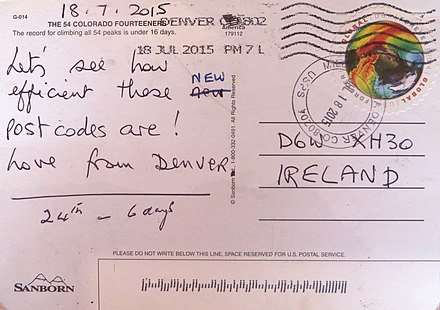 18.7.2015
G-014
THE 54 COLORADO FOURTEENERS
The record for climbing all 54 peaks is under 16 days.
DENVER CO 802
18 JUL 2015 PM 7 L
America
179112
Let's see how
efficient these new NEW
postcodes are!
Love from Denver
24th - 6 days
© Sanborn Ltd., 1-800-332-0491. All Rights Reserved
GLOBAL
FOREVER
GLOBAL
USPS
DENVER CO 80204
18 2015
D6W XH30
IRELAND
PLEASE DO NOT WRITE BELOW THIS LINE. SPACE RESERVED FOR U.S. POSTAL SERVICE.
SANBORN